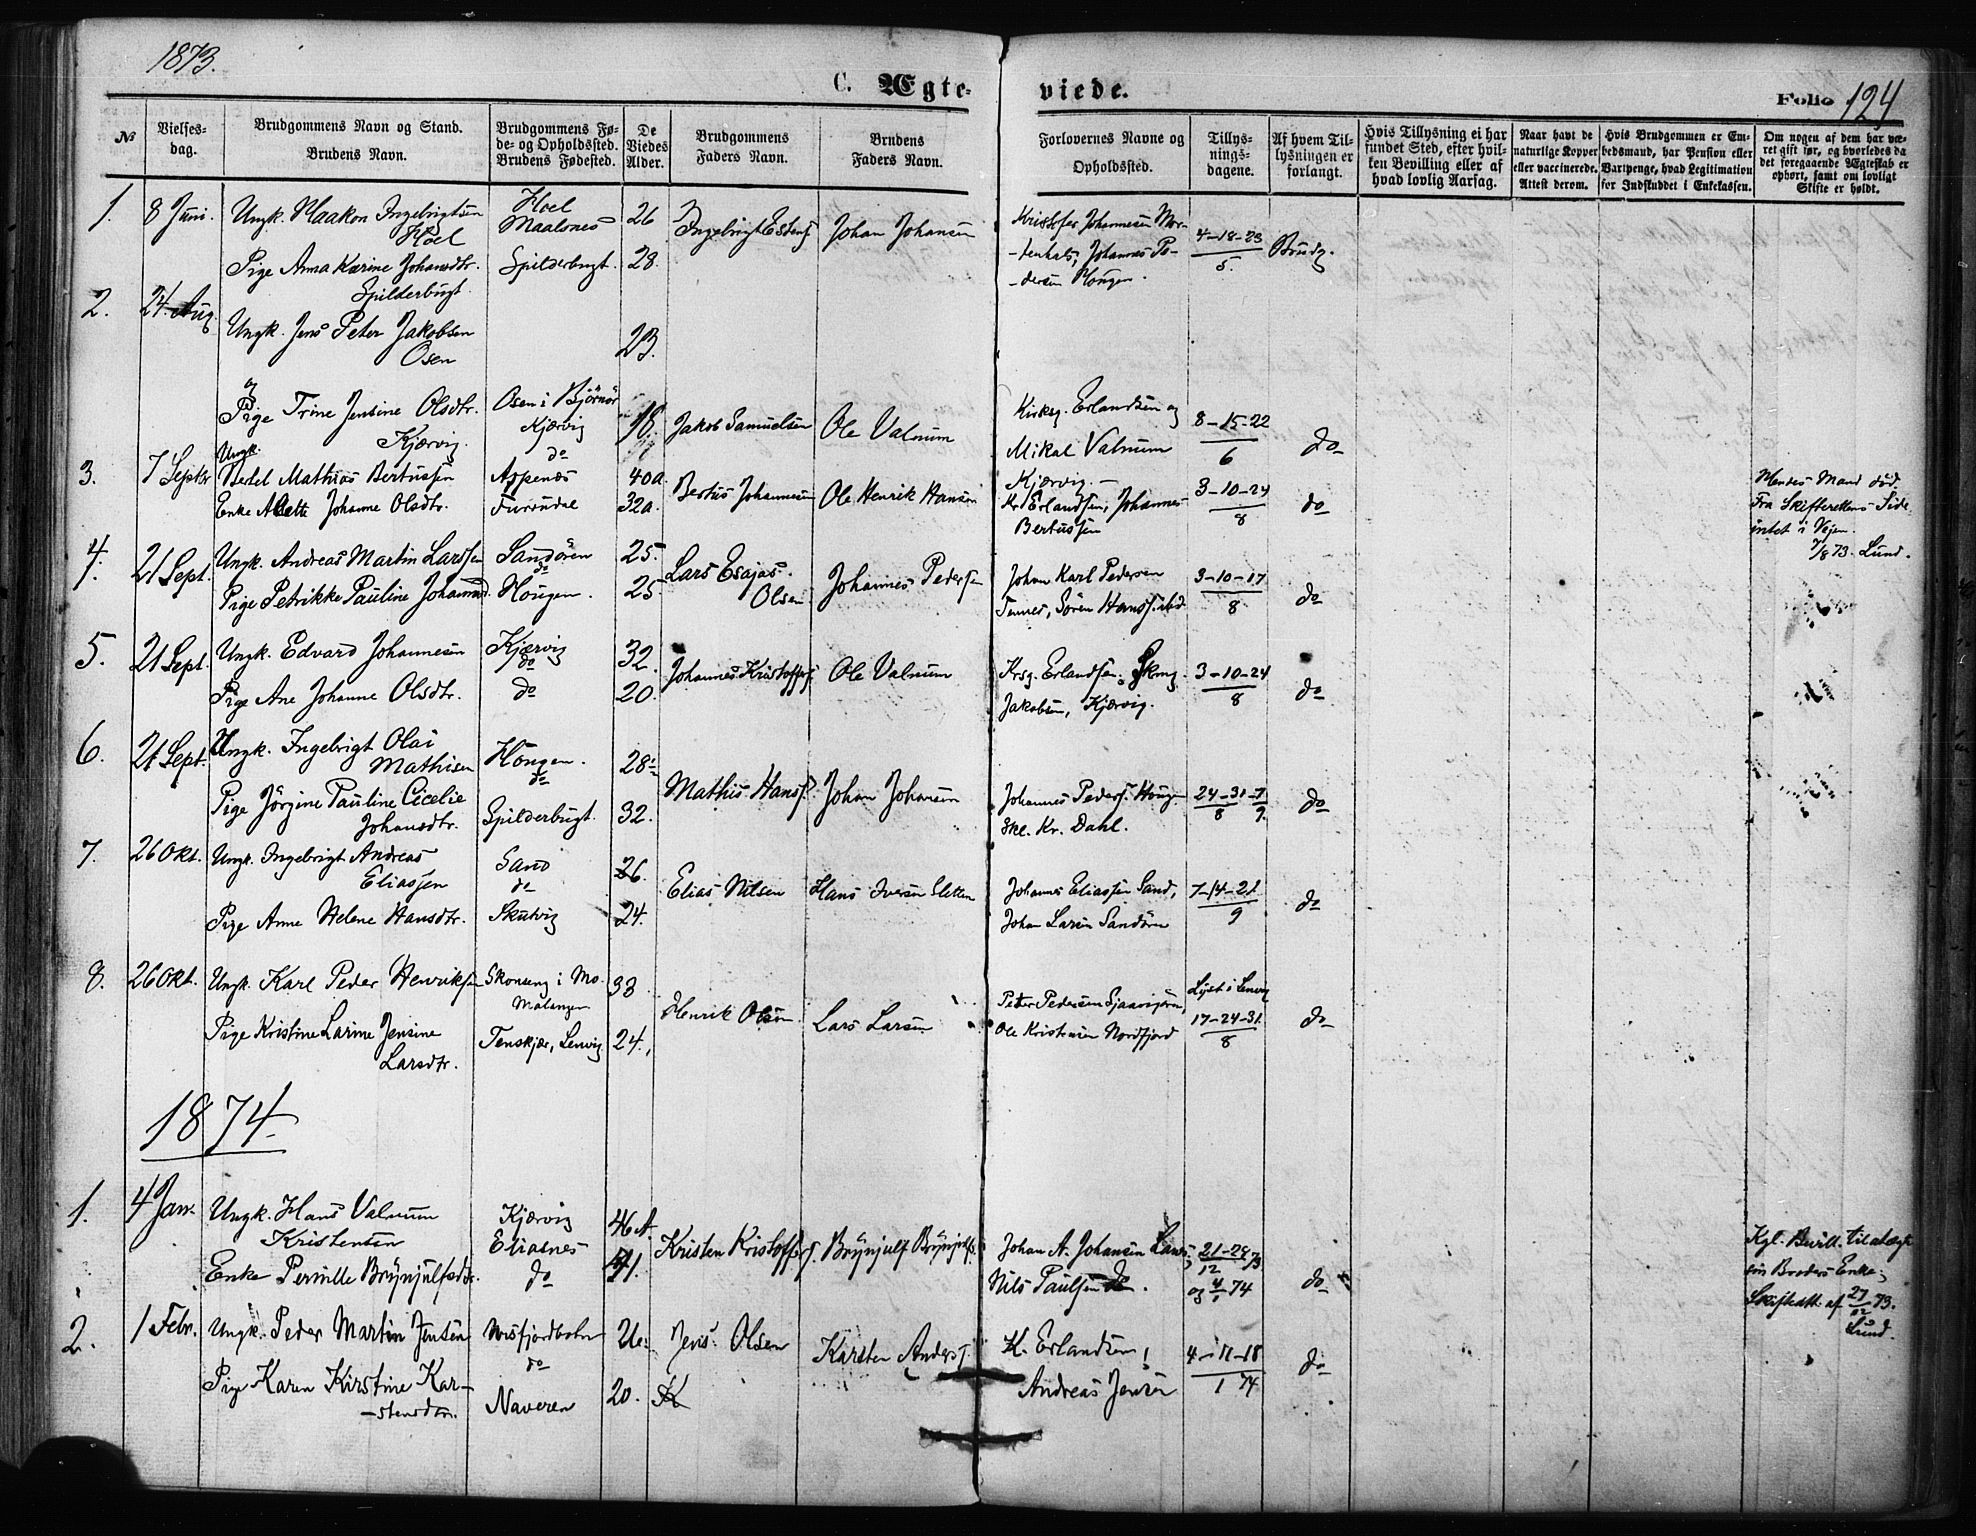 1873.
C. Ægte-
viede.
Folio 124
№
Vielses-
dag.
Brudgommens Navn og Stand.
Brudens Navn.
Brudgommens Fø-
de- og Opholdssted.
Brudens Fødested.
De
Viedes
Alder.
Brudgommens
Faders Navn.
Brudens
Faders Navn.
Forlovernes Navne og
Opholdssted.
Tillys-
nings-
dagene.
Af hvem Til-
lysningen er
forlangt.
Hvis Tillysning ei har
fundet Sted, efter hvil-
ken Bevilling eller af
hvad lovlig Aarsag.
Naar havt de
naturlige Kopper
eller vaccinerede.
Attest derom.
Hvis Brudgommen er Em-
bedsmand, har Pension eller
Vartpenge, hvad Legitimation
for Indskuddet i Enkekassen.
Om nogen af dem har væ-
ret gift før, og hvorledes da
det foregaaende Ægteskab er
ophørt, samt om lovligt
Skifte er holdt.
1. 8 Juni. Ungk. Haakon Ingebrigtsen
Hoel
Hoel
Maalsnes
26
Ingebrigt Estens.
Johan Johansen
Kristofer Johannesen Mor-
-tenhals, Johannes Pe-
-dersen Hougen.
4-18-23
5.
Brudg.
Pige Anna Karine Johansdtr.
Spilderbugt.
Spilderbugt.
28.
2. 24. Aug. Ungk. Jens Peter Jakobsen
Osen
23.
og
Pige Trine Jensine Olsdtr.
Kjærvig.
Osen i Bjørnør
Kjærvig
do
18.
Jakob Samuelsen
Ole Valnum
Kirksg. Erlandsen og
Mikal Valnum
Kjærvig.
8-15-22
6
do
3. 7 Septbr Ungk.
Bertel Mathias Bertussen
Enke Alette Johanne Olsdtr.
Aspenes
Furundal
40 a.
32 a.
Bertus Johannesen
Ole Henrik Hansen
Kr Erlandsen, Johannes
Bertussen
3-10-24
8
do
Hendes Mand død.
Fra Skifterettens Side
intet i Vejen.
7/8 73. Lund.
4. 21 Sept. Ungk. Andreas Martin Larssen
Pige Petrikke Pauline Johannesd.
Sandøren
do
Hougen.
25.
25
Lars Esajas.
Olsen
Johannes Pedersen
Johan Karl Pedersen
Tennes, Søren Hanss. ibid
3-10-17
8
do
5. 21 Sept. Ungk. Edvard Johannesen
Pige Ane Johanne Olsdtr.
Kjærvig
do
do
32.
20.
Johannes Kristoffers.
Ole Valnum
Krsg. Erlandsen.
Jakobsen, Kjærvig.
3-10-24
8
do
6. 21 Sept. Ungk. Ingebrigt Olai
Mathisen
Pige Jørgine Pauline Cicelie
Johansdtr.
Hougen.
do
Spilderbugt.
28
32.
Mathis Hanss.
Johan Johansen
Johannes Peders. Hougen
Skl. Kr. Dahl.
24-31-7
8 9.
do
7. 26 Okt. Ungk. Ingebrigt Andreas
Eliassen
Pige Anne Helene Hansdtr.
Sand
do
Skutvig
26.
24.
Elias Nilsen
Hans Iversen Sletten
Johannes Eliassen Sand,
Johan Larsen Sandøren
7-14-21
9
do
8. 26 Okt. Ungk. Karl Peder Henriksen
Pige Kristine Larine Jensine
Larsdtr.
Skoneng i Mo.
Malangen
Tenskjær, Lenvig
33
24.
Henrik Olsen
Lars Larsen
Peter Pedersen
Ole Kristensen Nordfjord
Lyst i Lenvig
17-24-31
8
do
1874.
1. 4 Jan. Ungk. Hans Valnum
Kristensen
Enke Pernille Brynjulfsdtr.
Kjærvig
Eliasnes
do
46 A.
Kristen Kristoffers.
Brynjulf Brynjulfs.
Johan A. Johansen
Nils Paulsen do.
21-28/73
12
og 4/1 74
do
Kgl. Bevill. til at ægte
sin Broders Enke;
Skifteatt. af 27/12 73.
Lund.
2. 1 Febr. Ungk. Peder Martin Jensen
Pige Karen Kirstine Kar-
-stensdtr.
do
Naveren
20.
Jens Olsen
Karsten Anders.
K. Erlandsen,
Andreas Jensen
4-11-18
1 74
do